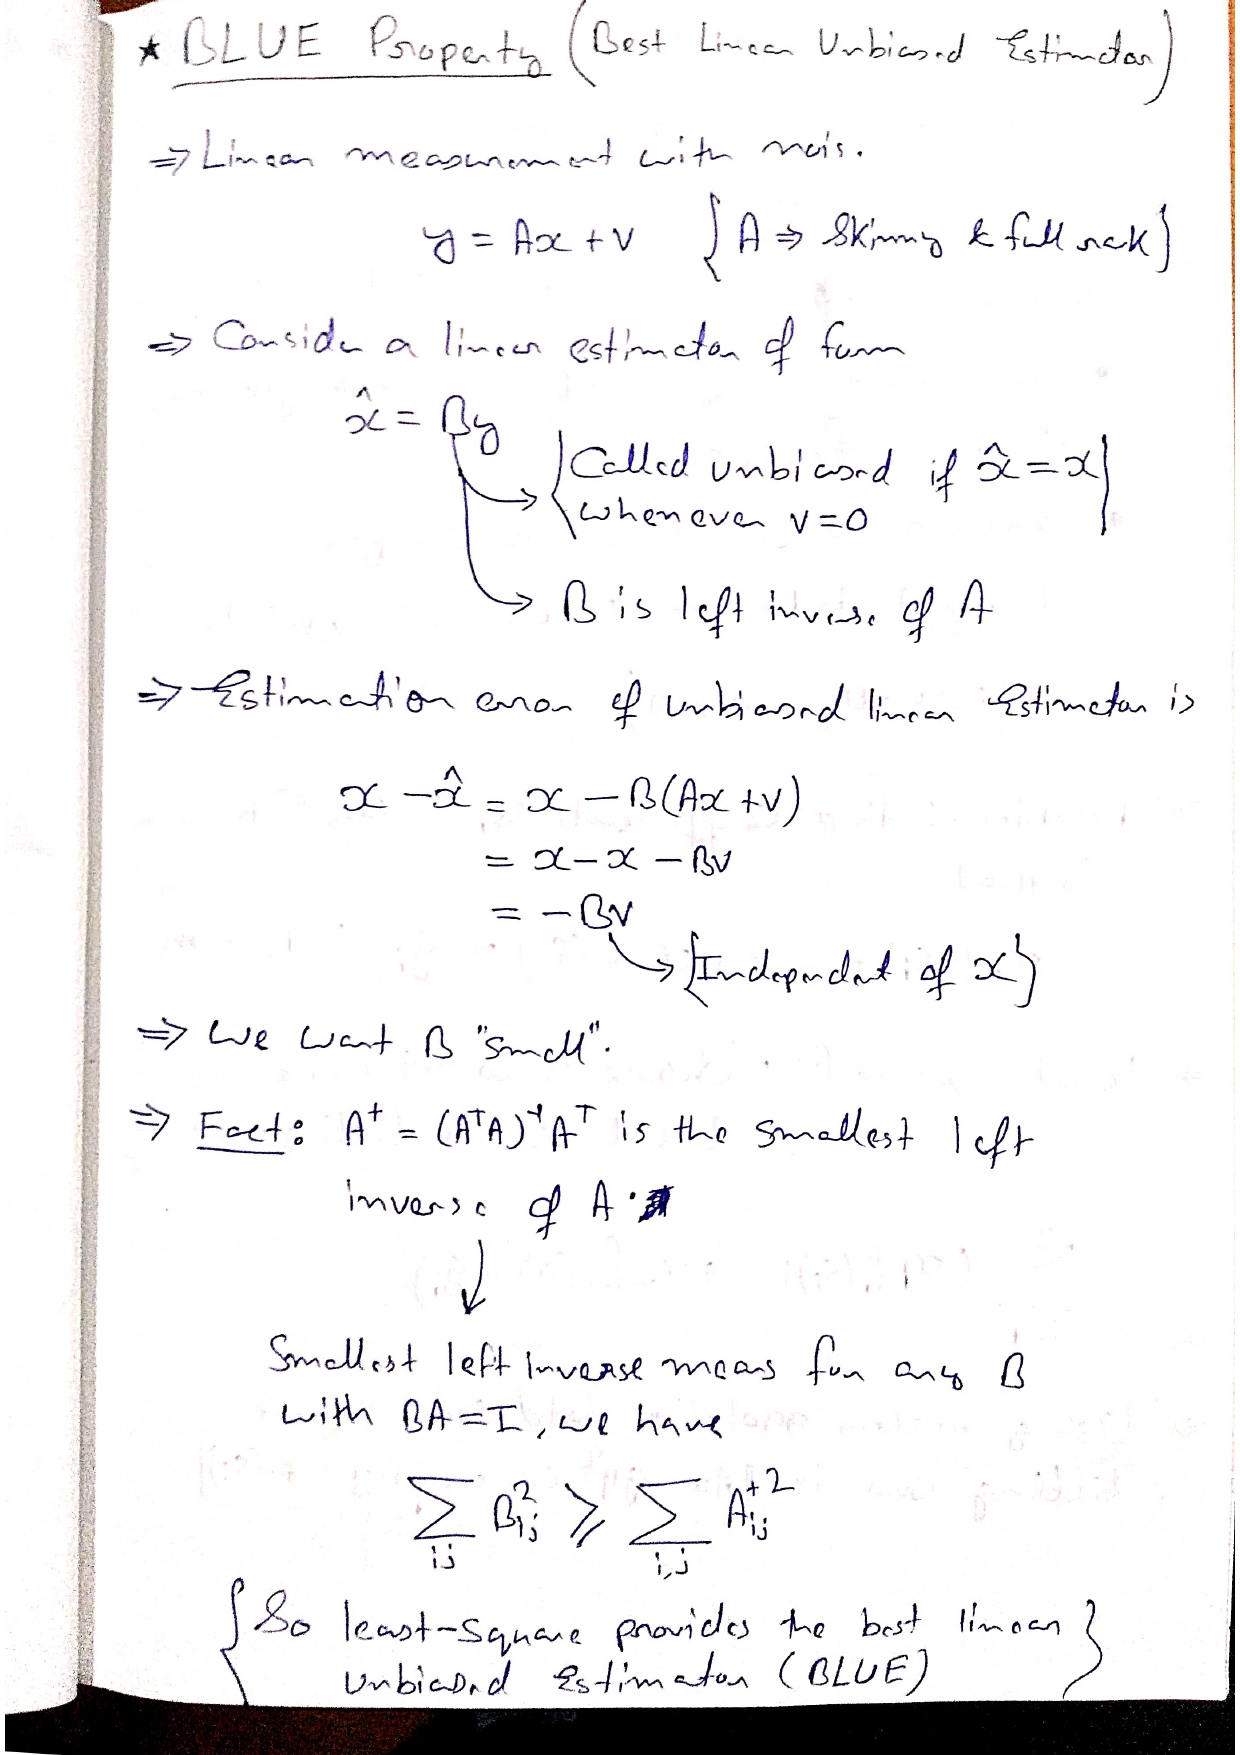 ★ BLUE Property (Best Linear Unbiased Estimator)
⇒ Linear measurement with nois.
y = Ax + v {A ⇒ Skinny & full rank}
⇒ Consider a linear estimator of form
x̂ = By
{Called unbiased if x̂ = x
whenever v=0}
→ B is left inverse of A
⇒ Estimation error of unbiased linear Estimator is
x - x̂ = x - B(Ax + v)
= x - x - Bv
= - Bv
→ {Independent of x}
⇒ We want B "small".
⇒ Fact: A⁺ = (AᵀA)⁻¹Aᵀ is the smallest left
inverse of A.
↓
Smallest left inverse means for any B
with BA = I, we have
∑ij Bij² ≥ ∑i,j Aij⁺²
{So least-square provides the best linear
Unbiased Estimator (BLUE)}